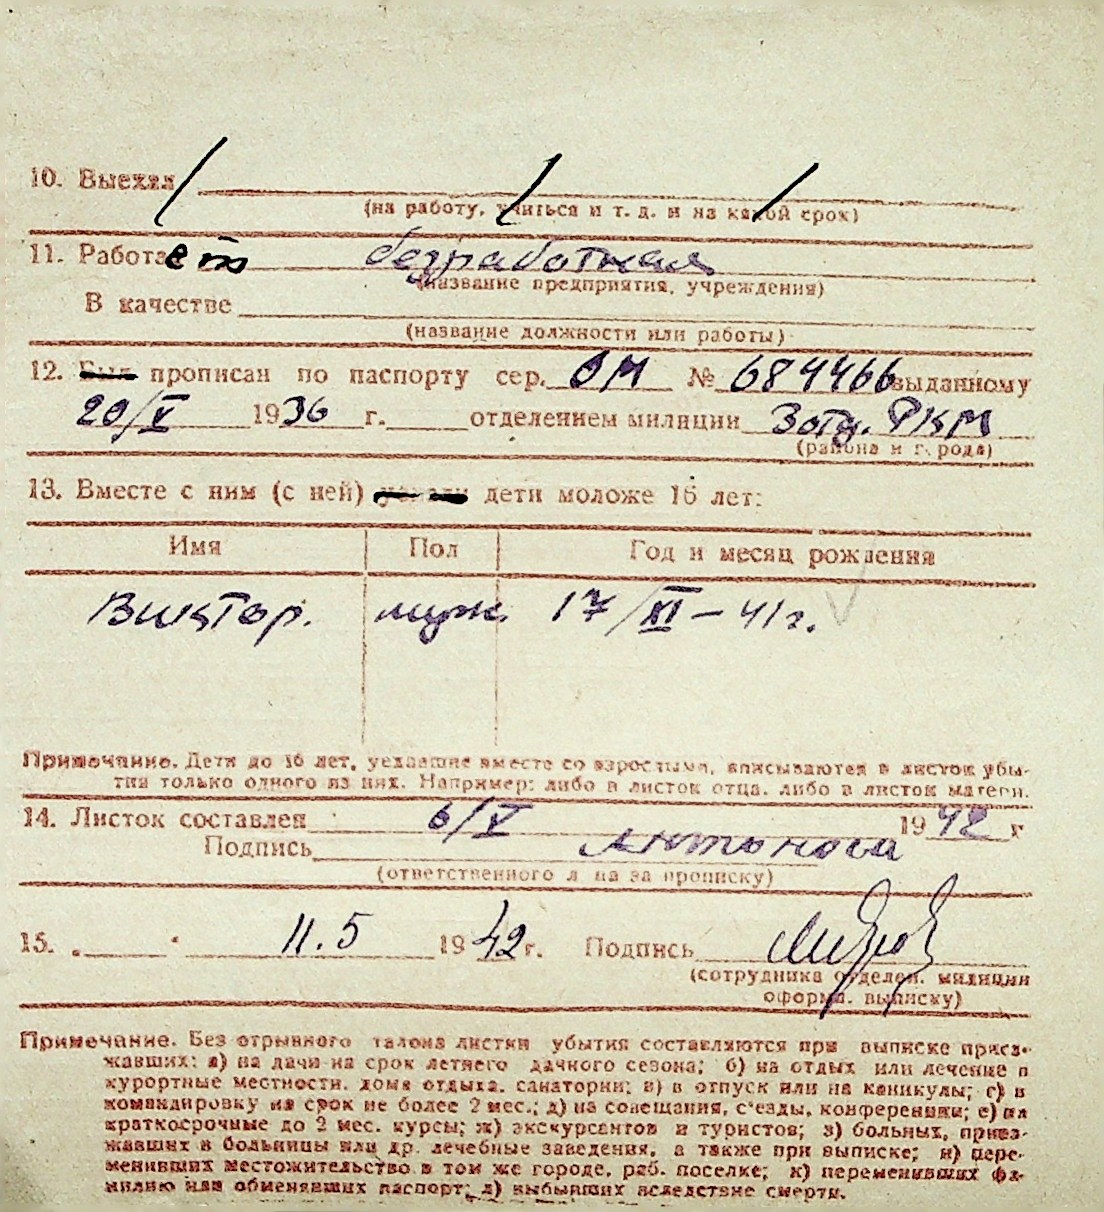 10. Выехал
(на работу, учиться и т. д. и на какой срок)
11. Работает безработная
(название предприятия, учреждения)
В качестве
(название должности или работы)
12. Был прописан по паспорту сер. ОМ № 684466 выданному
20/V 1936 г. отделением милиции 3 отд. РКМ
(района и города)
13. Вместе с ним (с ней) дети моложе 16 лет:
Имя Пол Год и месяц рождения
Виктор. муж. 17/XI – 41 г.
Примечание. Дети до 16 лет, уехавшие вместе со взрослыми, вписываются в листок убы-
тия только одного из них. Например: либо в листок отца, либо в листок матери.
14. Листок составлен 6/V 1942 г
Подпись Антонова
(ответственного л ца за прописку)
15. „ " 11.5 1942 г. Подпись
(сотрудника отделен. милиции
оформ. выписку)
Примечание. Без отрывного талона листки убытия составляются при выписке приез-
жавших: а) на дачи на срок летнего дачного сезона; б) на отдых или лечение в
курортные местности, дома отдыха, санатории; в) в отпуск или на каникулы; г) в
командировку на срок не более 2 мес.; д) на совещания, с'езды, конференции; е) на
краткосрочные до 2 мес. курсы; ж) экскурсантов и туристов; з) больных, приез-
жавших в больницы или др. лечебные заведения, а также при выписке; и) пере-
менивших местожительство в том же городе, раб. поселке; к) переменивших фа-
милию или обменявших паспорт; л) выбывших вследствие смерти.